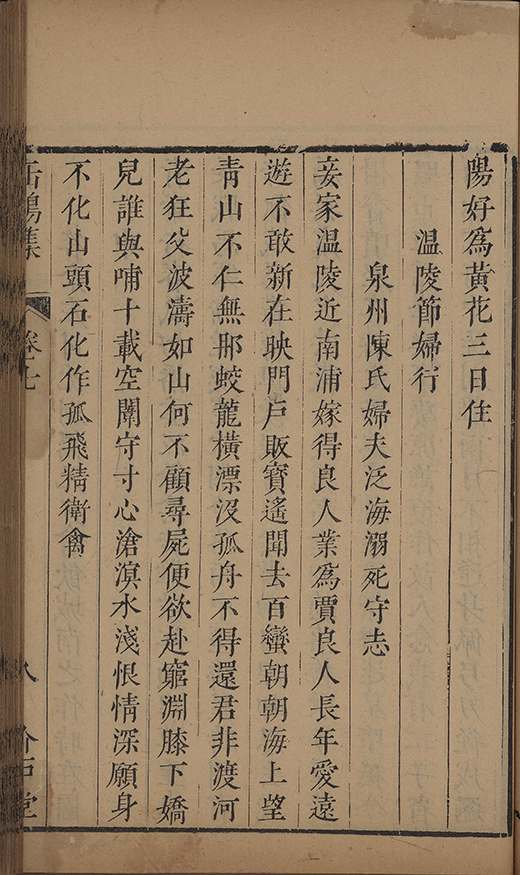 陽好為黃花三日住
溫陵節婦行
泉州陳氏婦夫泛海溺死守志
妾家溫陵近南浦嫁得良人業為賈良人長年愛遠
遊不敢新在映門戶販寶遙聞去百蠻朝朝海上望
青山不仁無那蛟龍橫漂沒孤舟不得還君非渡河
老狂父波濤如山何不顧尋屍便欲赴窮淵膝下嬌
兒誰與哺十載空閨守寸心滄溟水淺恨情深願身
不化山頭石化作孤飛精衛禽
集 卷七 八